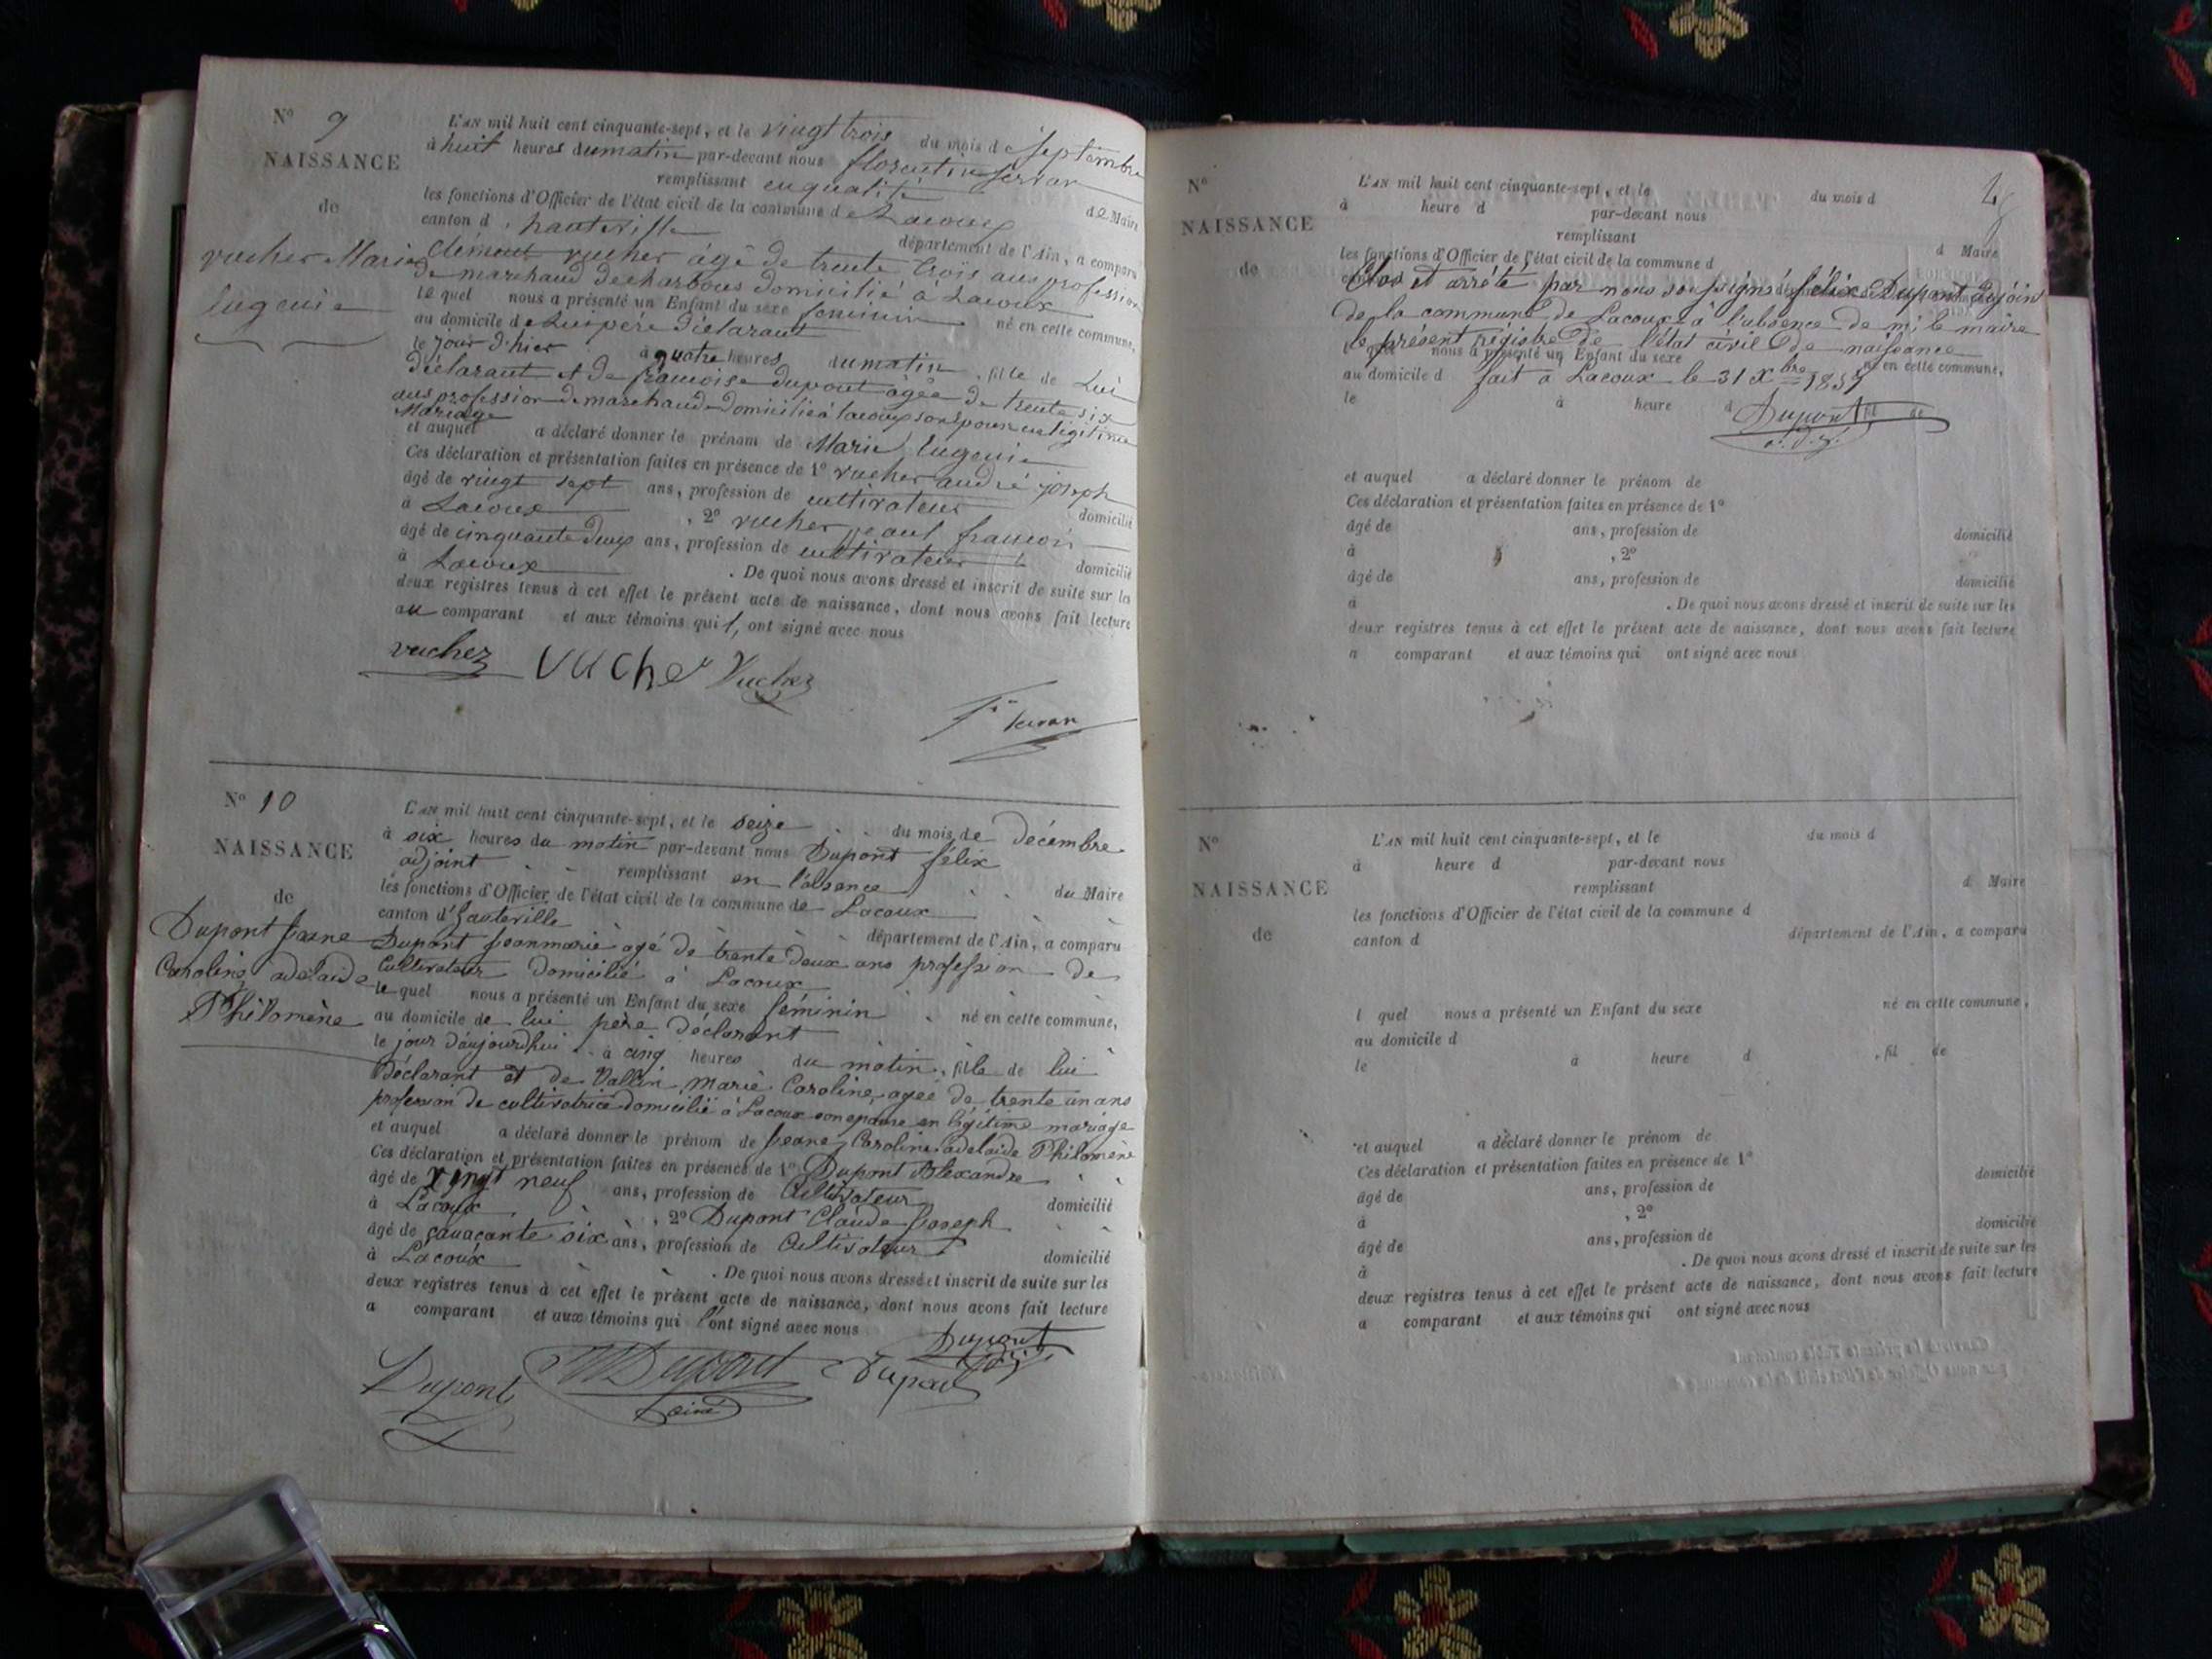 N° 9
NAISSANCE
de
vucher Marie
Eugenie
L'AN mil huit cent cinquante-sept, et le vingt trois du mois de septembre
à huit heures du matin par-devant nous florentin servan
remplissant en qualité de Maire
les fonctions d'Officier de l'état civil de la commune de Lacoux
canton d'hauteville département de l'Ain, a comparu
Clement vucher âgé de trente trois ans profession
de marchand de charbons domicilié à Lacoux
lequel nous a présenté un Enfant du sexe feminin né en cette commune,
au domicile de lui père déclarant
le jour d'hier à quatre heures du matin, fille de Lui
déclarant et de françoise dupont âgée de trente six
ans profession de marchande domicilié à lacoux son epouse en légitime
Mariage
et auquel a déclaré donner le prénom de Marie Eugenie
Ces déclaration et présentation faites en présence de 1° vucher andré joseph
âgé de vingt sept ans, profession de cultivateur domicilié
à Lacoux, 2° vucher jean francois
âgé de cinquante deux ans, profession de cultivateur domicilié
à Lacoux. De quoi nous avons dressé et inscrit de suite sur les
deux registres tenus à cet effet le présent acte de naissance, dont nous avons fait lecture
au comparant et aux témoins qui l, ont signé avec nous
vuchez vucher Vuchez
N° 10
NAISSANCE
de
Dupont Jeane
Caroline adelaide
Philomène
L'AN mil huit cent cinquante-sept, et le seize du mois de décembre
à six heures du matin par-devant nous Dupont félix
adjoint remplissant en l'absence du Maire
les fonctions d'Officier de l'état civil de la commune de Lacoux
canton d'hauteville département de l'Ain, a comparu
Dupont jeanmarie agé de trente deux ans profession de
Cultivateur domicilié à Lacoux
lequel nous a présenté un Enfant du sexe féminin né en cette commune,
au domicile de lui père déclarant
le jour d'aujourdhui à cinq heures du matin, fille de lui
Déclarant et de Vallin Marie Caroline agée de trente un ans
profession de cultivatrice domicilié à Lacoux son epouse en légitime mariage
et auquel a déclaré donner le prénom de Jeane Caroline adelaide Philomène
Ces déclaration et présentation faites en présence de 1° Dupont Alexandre
âgé de vingt neuf ans, profession de Cultivateur domicilié
à Lacoux, 2° Dupont Claude Joseph
âgé de çauaçante six ans, profession de Cultivateur domicilié
à Lacoux. De quoi nous avons dressé et inscrit de suite sur les
deux registres tenus à cet effet le présent acte de naissance, dont nous avons fait lecture
a comparant et aux témoins qui l'ont signé avec nous
Dupont
Dupont Dupont Dupont
N°
NAISSANCE
de
L'AN mil huit cent cinquante-sept, et le du mois d
à heure d par-devant nous
remplissant d Maire
les fonctions d'Officier de l'état civil de la commune d
Clos et arrété par nous soussigné félix Dupont adjoint
de la commune de Lacoux à l'absence de mr le maire
le présent régistre de l'état civil de naissance
l quel nous a présenté un Enfant du sexe né en cette commune,
au domicile d fait à Lacoux le 31 Xbre 1857
le à heure d Dupont fil de
et auquel a déclaré donner le prénom de
Ces déclaration et présentation faites en présence de 1°
âgé de ans, profession de domicilié
à , 2°
âgé de ans, profession de domicilié
à . De quoi nous avons dressé et inscrit de suite sur les
deux registres tenus à cet effet le présent acte de naissance, dont nous avons fait lecture
a comparant et aux témoins qui ont signé avec nous
N°
NAISSANCE
de
L'AN mil huit cent cinquante-sept, et le du mois d
à heure d par-devant nous
remplissant d Maire
les fonctions d'Officier de l'état civil de la commune d
canton d département de l'Ain, a comparu
l quel nous a présenté un Enfant du sexe né en cette commune,
au domicile d
le à heure d , fil de
et auquel a déclaré donner le prénom de
Ces déclaration et présentation faites en présence de 1°
âgé de ans, profession de domicilié
à , 2°
âgé de ans, profession de domicilié
à . De quoi nous avons dressé et inscrit de suite sur les
deux registres tenus à cet effet le présent acte de naissance, dont nous avons fait lecture
a comparant et aux témoins qui ont signé avec nous